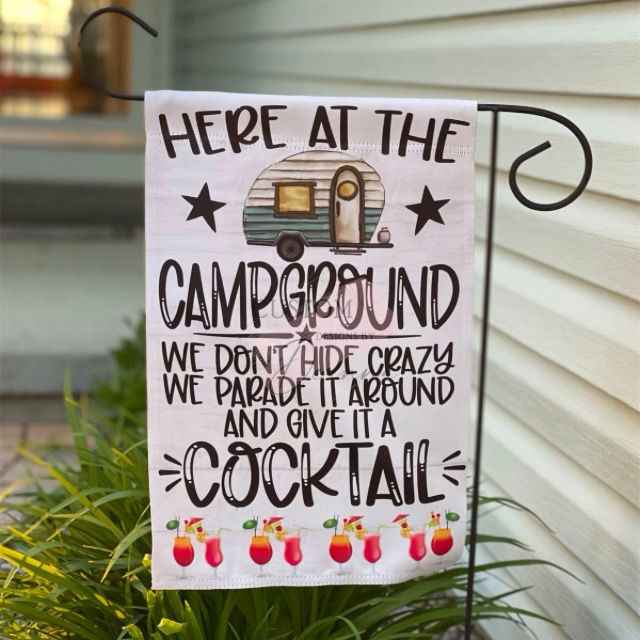 HERE AT THE
CAMPGROUND
CUSTOM
DESIGNS BY
WE DON'T HIDE CRAZY
WE PARADE IT AROUND
AND GIVE IT A
COCKTAIL